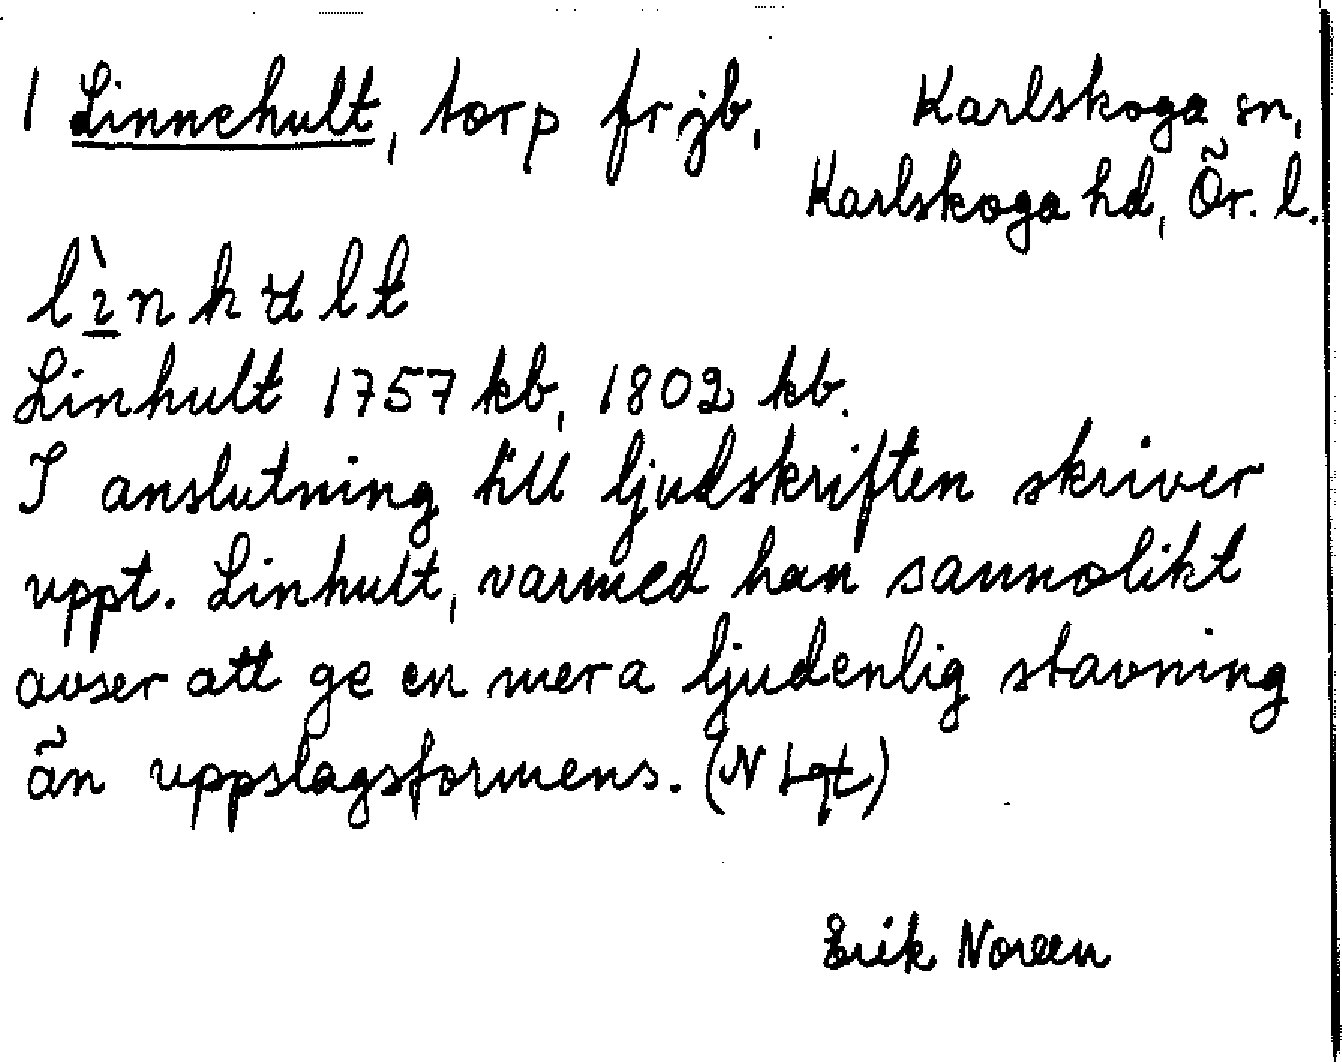 1 Linnehult, torp fr jb, Karlskoga sn,
Karlskoga hd, Ör. l.
lìnhʉlt
Linhult 1757 kb, 1802 kb.
I anslutning till ljudskriften skriver
uppt. Linhult, varmed han sannolikt
avser att ge en mera ljudenlig stavning
än uppslagsformens. (N Lqt)
Erik Noreen